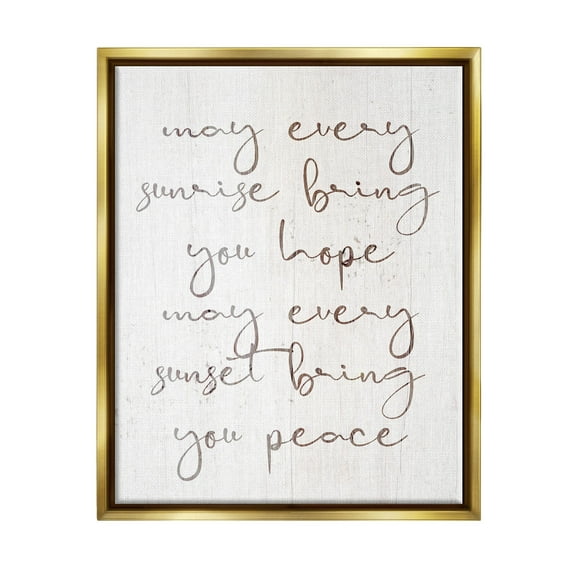 may every
sunrise bring
you hope
may every
sunset bring
you peace